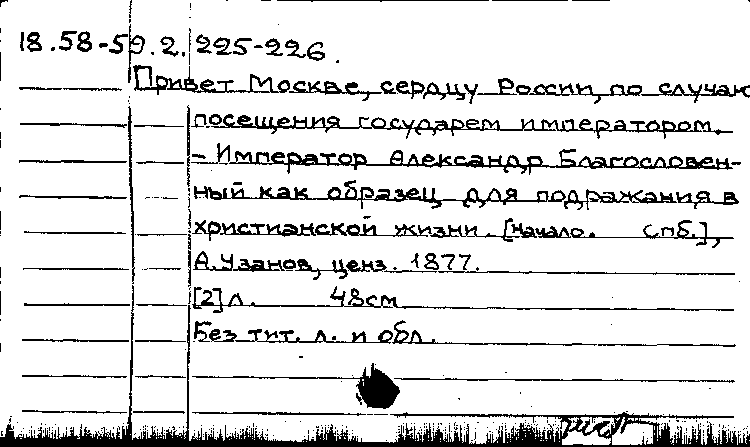 18.58-59.2. 225-226.
Привет Москве, сердцу России, по случаю
посещения государем императором.
– Император Александр Благословен-
ный как образец для подражания в
христианской жизни. [Начало. Спб.],
А. Узанов, ценз. 1877.
[2] л. 48см
Без тит. л. и обл.